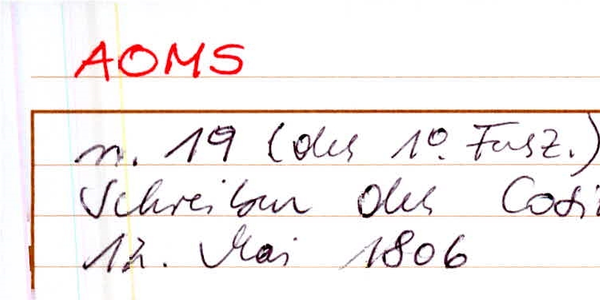 AOMS
n. 19 (des 1º. Fasz.)
Schreiben des
12. Mai 1806